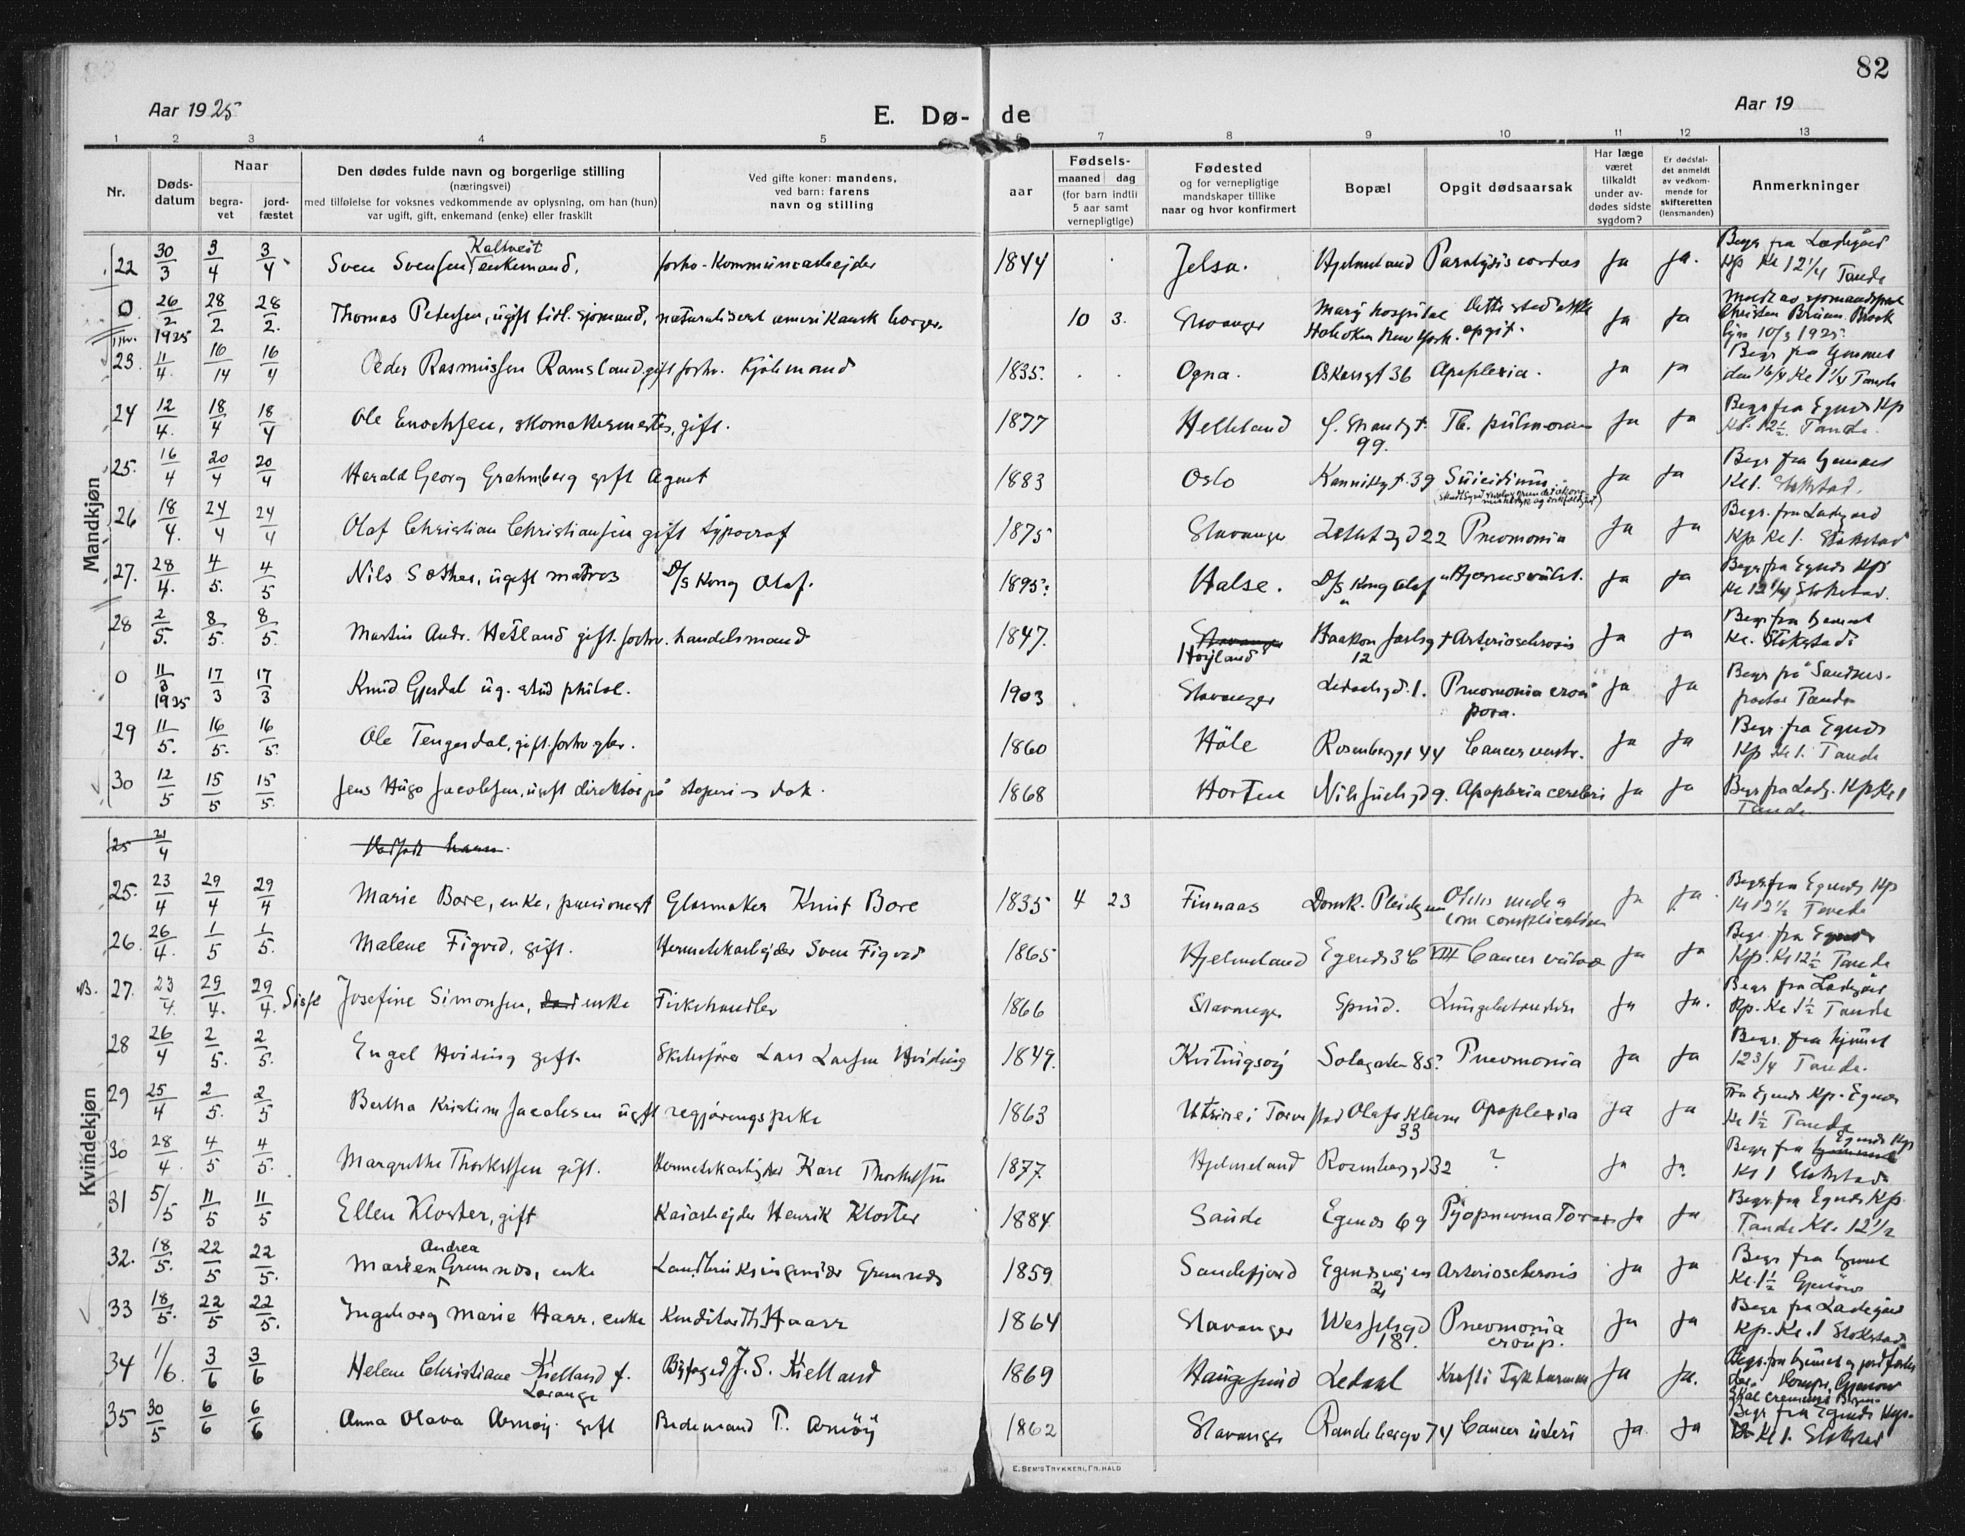 82
Aar 1925
E. Dø- de
Aar 19
1 2 3 4 5 6 7 8 9 10 11 12 13
Nr.
Døds-
datum
Naar
begra-
vet
jord-
fæstet
Den dødes fulde navn og borgerlige stilling
(næringsvei)
med tilføielse for voksnes vedkommende av oplysning, om han (hun)
var ugift, gift, enkemand (enke) eller fraskilt
Ved gifte koner: mandens,
ved barn: farens
navn og stilling
Fødsels-
aar
maaned dag
(for barn indtil
5 aar samt
vernepligtige)
Fødested
og for vernepligtige
mandskaper tillike
naar og hvor konfirmert
Bopæl
Opgit dødsaarsak
Har læge
været
tilkaldt
under av-
dødes sidste
sygdom?
Er dødsfal-
det anmeldt
av vedkom-
mende for
skifteretten
(lensmanden)
Anmerkninger
Mandkjøn
22 30/3 3/4 3/4 Sven Svensen Kaltveit enkemand, forhv. Kommunearbejder 1844 Jelsa. Hjelmeland Paralysis cordis Ja Ja. Begr fra Ladegård
Kp Kl 12 1/4 Tande
0 26/2 1925 28/2 28/2. Thomas Petersen, ugift tidl. sjømand, naturalisert amerikansk borger. 10 3. Stavanger Mary hospital Dette sted ikke Ja Ja
Hoboken New York. opgit. 10/3 1925.
23. 11/4. 16/14 16/4 Peder Rasmussen Ramsland gift forhv. Kjøbmand 1835. Ogna. Oskarsgt 36 Apoplexia. Ja Ja Begr fra hjemmet
den 16/4 Kl 1 1/4 Tande
24 12/4. 18/4 18/4 Ole Enochsen, skomakermester, gift. 1877 Helleland 99. Tb. pulmonum Ja Ja Begr fra Egenes Kp
Kl. 12 1/2. Tande.
25. 16/4 20/4 20/4 Harald Georg Grahmberg gift Agent 1883 Oslo Kannikgt. 39 Suicidium Ja Ja Begr fra hjemmet
Kl 1. Stokstad.
26 18/4. 24/4 24/4 Olaf Christian Christiansen gift typograf 1875 Stavanger 22 Pneumonia Ja Ja Begr. fra Ladegård
Kp. Kl 1. Stokstad
27. 28/4. 4/5. 4/5 Nils Sæther, ugift matros D/s Kong Olaf. 1895. Halse. D/s Kong Olaf Hjernesvulst. Ja Ja Begr fra Egenes Kp
Kl 12 1/4 Stokstad.
28 2/5. 8/5. 8/5. Martin Andr. Hetland gift. forhv. handelsmand 1847. Høyland Haakon Jarlsgt 12 Arteriosclerosis Ja Ja Begr fra hjemmet
Kl. Stokstad
0 11/3 1925 17/3 17/3 Knud Gjesdal ug. stud philol. 1903 Stavanger 1. Pneumonia crouposa. Ja Ja Begr på Sandnes.
Tande
29 11/5. 16/5. 16/5. Ole Tengesdal, gift. forhv gbr. 1860 Høle Rosenberggt 44 Cancer ventr. Ja Ja Begr. fra Egenes
Kp Kl 1. Tande
30 12/5 15/5 15/5. Jens Hugo Jacobsen, ugift direktør på støperi & dok. 1868 Horten 9. Apoplexia cerebri Ja Ja Begr fra Ladg. Kp Kl 1
Tande.
Kvindekjøn
25 21/4
25. 23/4 29/4 29/4 Marie Bore, enke, pensionert Glasmaker Knut Bore 1835 4 23 Finnaas Domk. Pleiehjem Otitis media Ja Ja. Begr. fra Egenes Kp
com complication Kl 12 1/2 Tande
26. 26/4. 1/5 1/5. Malene Figved, gift. Hermetikarbejder Sven Figved 1865 Hjelmeland Egenes 36 VIII Cancer Ja Ja Begr. fra Egenes
Kp. Kl 12 1/2 Tande
27. 23/4. 29/4. 29/4. Josefine Simonsen, enke Fiskehandler 1866 Stavanger Lungebetændelse Ja Ja. Begr fra Ladegård
Kp. Kl 1 1/2 Tande
28 26/4 2/5. 2/5. Engel Hviding gift. Skibsfører Lars Larsen Hviding 1849. Kvitingsøy Solagaten 85. Pneumonia Ja Ja Begr. fra hjemmet
12 3/4 Tande.
29 25/4 2/5. 2/5 Bertha Kristine Jacobsen ugift rengjøringspike 1863 Utsire i Torvestad Olafs Kleven 33 Apoplexia Ja Ja Fra Egenes Kp. Egenes
Kl 1 1/2 Tande
30 28/4. 4/5 4/5. Margrethe Thorkelsen gift. Hermetikarbejder Karl Thorkelsen 1877. Hjelmeland Rosenberggd 32 ? Ja Ja. Begr fra Egenes Kp
Kl 1 Stokstad.
31 5/5 11/5 11/5 Ellen Kloster, gift Kaiarbejder Henrik Kloster 1884 Sande Egenes 69 Pyopneumatorax Ja Ja Begr. fra Egenes Kp.
Tande Kl. 12 1/2
32. 18/5. 22/5 22/5. Marien Andrea Grimnes, enke Landbruksingeniør Grimnes 1859 Sandefjord Egenesveien 2 Arteriosclerosis Ja Ja Begr fra hjemmet
Kl. 1 1/2 Gjerløw
33 18/5. 22/5 22/5. Ingeborg Marie Haarr. enke Konditor Th. Haarr 1864 Stavanger Wesselsgd 18. Pneumonia croup. Ja Ja Begr fra Ladegård
Kp. Kl. 1 Stokstad
34 1/6. 3/6 3/6 Helene Christiane Kielland f. Lorange Byfoged J. S. Kielland 1869 Haugesund Ledaal Ja Ja.
35 30/5 6/6 6/6 Anna Olava Arnøy. gift Budemand T. Arnøy 1862 Stavanger Randeberggt 74 Cancer uteri Ja Ja Begr fra Egenes Kp.
Kl 1. Stokstad
E. SEM'S TRYKKERI, FR. HALD